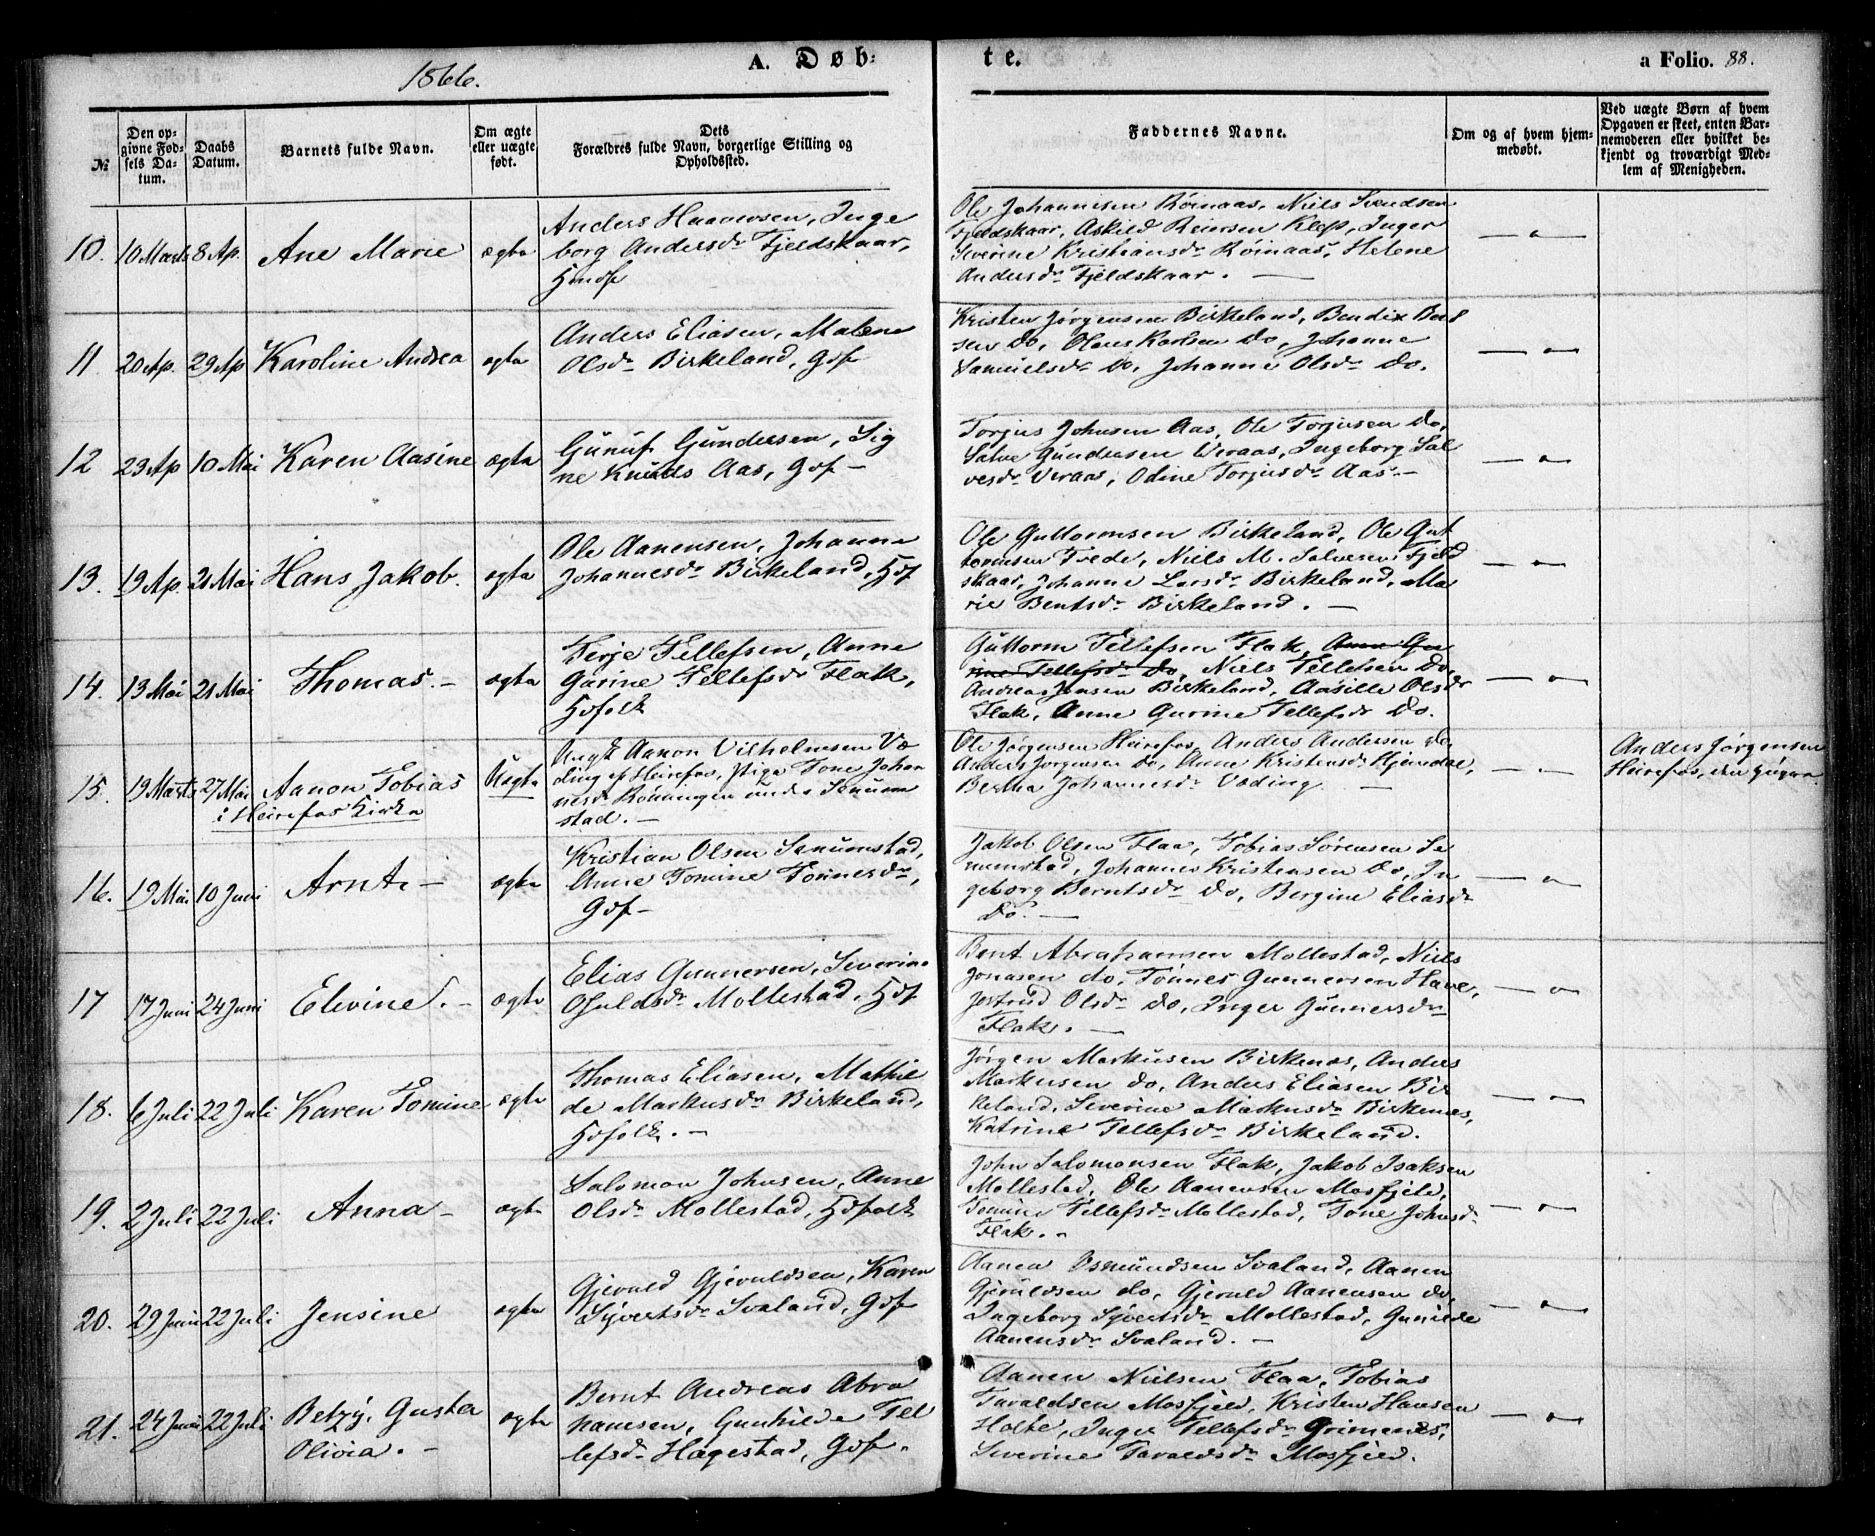 1866.
A. Døb-
te.
a Folio. 88.
№
Den op-
givne Fød-
sels Da-
tum.
Daabs
Datum.
Barnets fulde Navn.
Om ægte
eller uægte
født.
Dets
Forældres fulde Navn, borgerlige Stilling og
Opholdssted.
Faddernes Navne.
Om og af hvem hjem-
medøbt.
Ved uægte Børn af hvem
Opgaven er skeet, enten Bar-
nemoderen eller hvilket be-
kjendt og troværdigt Med-
lem af Menigheden.
10. 10 Marts 8 Ap. Ane Marie ægte
Anders Haavorsen, Inge
borg Andersdr Fjeldskaar,
Hmdsf
Ole Johannesen Röinaas, Niels Svendsen
Fjeldskaar, Askild Reiersen Klep, Inger
Severine Kristiansdr Röinaas, Helene
Andersdr Fjeldskaar. —
— " —
11 20 Ap. 29 Ap Karoline Andrea ægte
Anders Eliasen, Malene
Olsdr Birkeland, Gdf
Kristen Jørgensen Birkeland, Bendix Bent
sen Do, Olaus Karlsen Do, Johanne
Samuelsdr Do, Johanne Olsdr Do.
— " —
12 23 Ap 10 Mai Karen Aasine ægte
Gunuf Gundersen, Sig
ne Knuds Aas, Gdf —
Torjus Johnsen Aas, Ole Torjusen Do,
Salve Gundersen Veraas, Ingeborg Sal
vesdr Veraas, Odine Torjusdr Aas. —
— " —
13. 19 Ap. 21 Mai Hans Jakob. ægte
Ole Aanensen, Johanne
Johannesdr Birkeland, Hdf
Ole Guttormsen Birkeland, Ole Gut
tormsen Trede, Niels M. Salvesen Fjeld
skaar, Johanne Larsdr Birkeland, Ma
rie Bentsdr Birkeland. —
— " —
14. 13 Mai 21 Mai Thomas. — ægte
Terje Tellefsen, Anne
Gurine Tellefsdr Flak,
Hdfolk
Guttorm Tellefsen Flak, Anne Gu
rine Tellefsdr Do, Niels Tellefsen Do,
Andreas Jensen Birkeland, Aasille Olsdr
Flak, Anne Gurine Tellefsdr Do.
— " —
15. 19 Marts 27 Mai Aanon Tobias Uægte
i Heirefos Kirke
Ungk Aanon Vilhelmsen Væ
ding af Heirefos, Pige Tone Johan
nesdr Rönningen under Senum
stad. —
Ole Jørgensen Heirefos, Anders Andersen do,
Anders Jørgensen Do, Anne Kristensdr Kjendal,
Bertha Johannesdr Væding —
— " —
Anders Jørgensen
Heirefos,
16. 19 Mai 10 Juni Arnt. — ægte
Kristian Olsen Senumstad,
Anne Tomine Tönnesdr,
Gdf —
Jakob Olsen Flaa, Tobias Sørensen Se
numstad, Johannes Kristensen Do, In
geborg Berntsdr Do, Bergine Eliasdr
Do. —
— " —
17 17 Juni 24 Juni Elevine. — ægte
Elias Gunnersen, Severine
Osuldsdr Mollestad, Hdf
Bent Abrahamsen Mollestad, Niels
Jonasen do, Tönnes Gunnersen Have,
Jostrud Olsdr Do, Inger Gunnersdr
Flak. —
— " —
18. 6 Juli 22 Juli Karen Tomine ægte
Thomas Eliasen, Mathil
de Markusdr Birkeland,
Hdfolk. —
Jørgen Markusen Birkenes, Anders
Markusen do, Anders Eliasen Bir
keland, Severine Markusdr Birkenes,
Katrine Tellefsdr Birkeland.
— " —
19. 2 Juli 22 Juli Anna — ægte
Salomon Johnsen, Anne
Olsdr Mollestad, Hdfolk
John Salomonsen Flak, Jakob Isaksen
Mollestad, Ole Aanensen Mosfjeld,
Tomine Tellefsdr Mollestad, Tone Johnsdr
Flak. —
— " —
20. 29 Juni 22 Juli Jensine ægte
Gjeruld Gjeruldsen, Karen
Syvertsdr Svaland, Gdf
Aanen Osmundsen Svaland, Aanen
Gjeruldsen do, Gjeruld Aanensen do,
Ingeborg Syvertsdr Mollestad, Gunilde
Aanensdr Svaland. —
— " —
21. 24 Juni 22 Juli Betzy Gusta ægte
Olivia. —
Bernt Andreas Abra
hamsen, Gunhilde Tel
lefsdr Hægestad, Gdf.
Aanen Nielsen Flaa, Tobias
Taraldsen Mosfjeld, Kristen Hansen
Holte, Inger Tellefsdr Grimenes,
Severine Taraldsdr Mosfjeld.
— " —